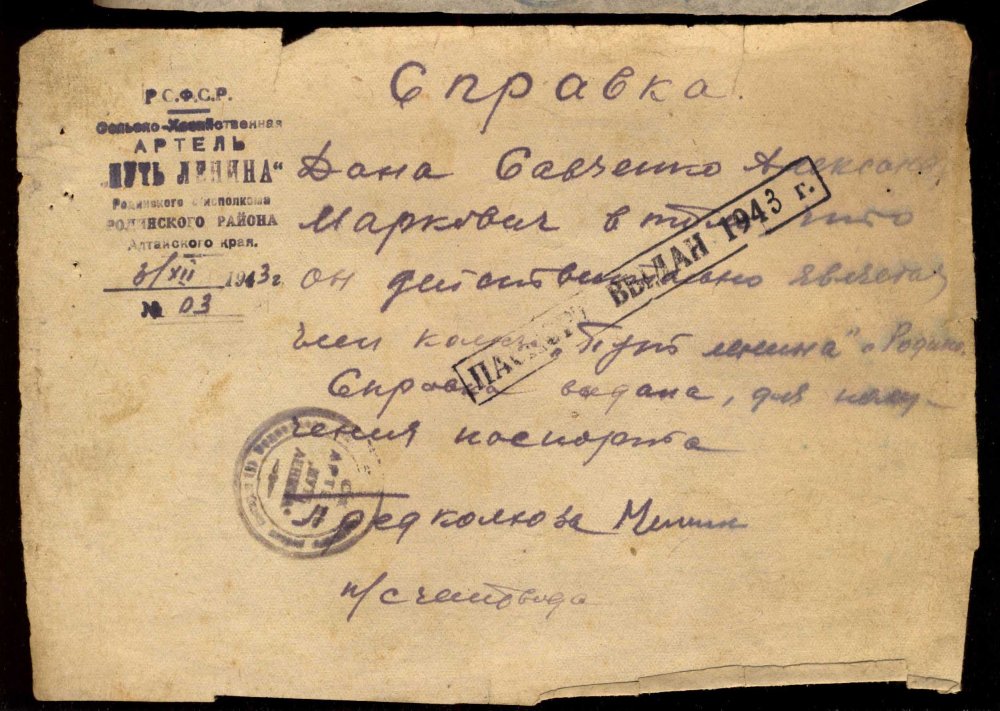 Р.С.Ф.С.Р.
Сельско-Хозяйственная
АРТЕЛЬ
„ПУТЬ ЛЕНИНА“
Родинского с/исполкома
РОДИНСКОГО РАЙОНА
Алтайского края.
3/XII 1943 г.
№ 03
Справка.
Дана Савченко Александр
Маркович в том что
он действительно является
член колхоз „Путь ленина“ с Родино.
Справка выдана, для полу-
чения паспорта
Предколхоза
п/счетовода
ПАСПОРТ ВЫДАН 1943 г.
АРТ
ПУТЬ
ЛЕНИНА